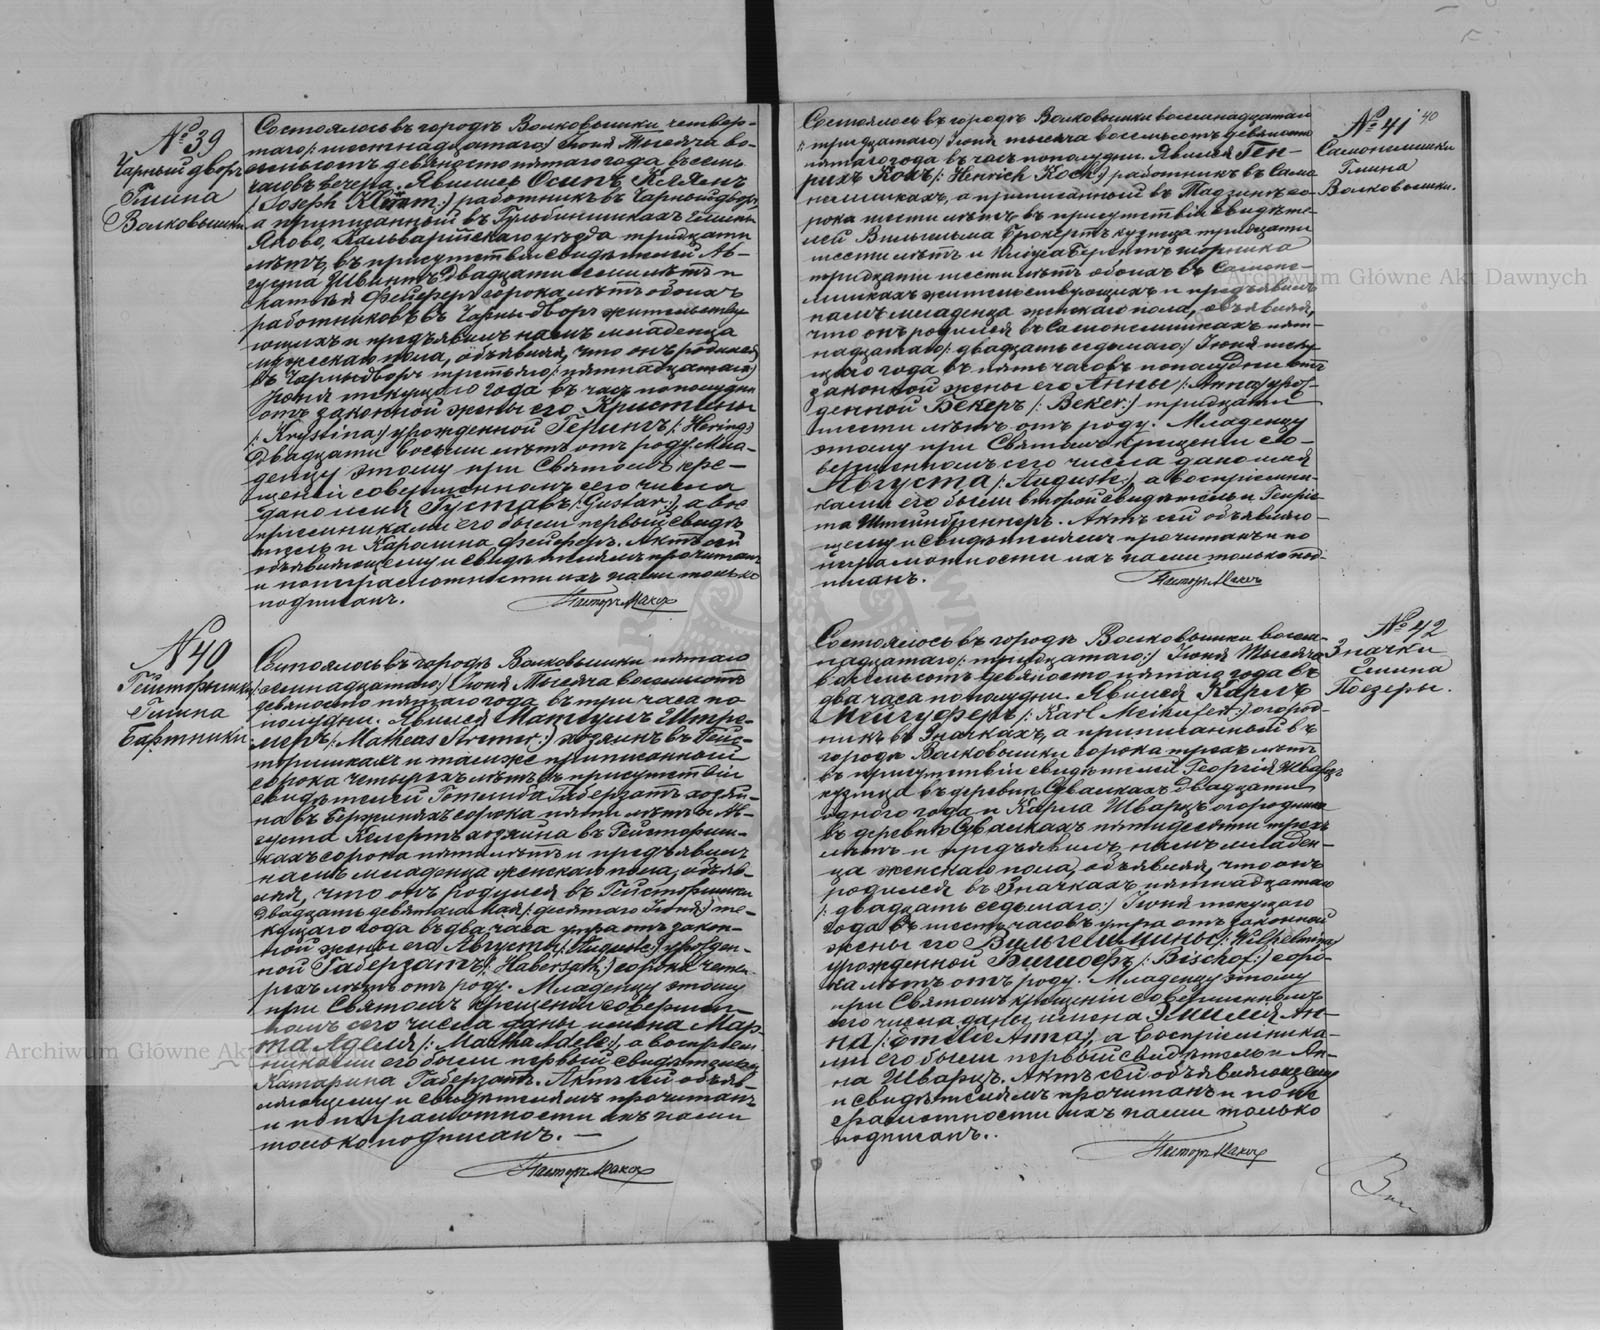 № 39
Чарный дворъ
Гмина
Волковышки
Состоялось въ городѣ Волковышки четвер-
таго /: шестнадцатаго:/ Іюня Тысяча во-
семьсотъ девяносто пятаго года въ семь
часовъ вечера. Явился Осипъ Клямъ
/: Joseph Klam:/ работникъ въ Чарномъ дворѣ,
а приписанный въ Гульбинишкахъ Гмины
Яново, Кальварійскаго уѣзда тридцати
лѣтъ, въ присутствіи свидѣтелей Ав-
густа Двадцати семи лѣтъ и
Фейферъ сорока лѣтъ обоихъ
работниковъ въ Чарны-дворѣ жительству-
ющихъ и предъявилъ намъ младенца
мужескаго пола, объявляя, что онъ родился
въ Чарныдворѣ третьяго /: пятнадцатаго:/
Іюня текущаго года въ часъ пополудни
отъ законной жены его Кристины
/: Krystina:/ урожденной Герингъ /: Hering:/
Двадцати восьми лѣтъ отъ роду. Мла-
денцу этому при Святомъ кре-
щеніи совершонномъ сего числа
дано имя Густавъ /: Gustav:/, а вос-
пріемниками его были первый свидѣ-
тель и Каролина Фейферъ. Актъ сей
объявляющему и свидѣтелямъ прочитанъ
и по неграмотности ихъ нами только
подписанъ.
Пасторъ Махъ
№ 40
Гейсторишки
Гмина
Бартники
Состоялось въ городѣ Волковышки пятаго
/: семнадцатаго:/ Іюня Тысяча восемьсотъ
девяносто пятаго года въ три часа по
полудни. Явился Матеушъ Штре-
меръ /: Matheas Stremer:/ хозяинъ въ Гейс-
торишкахъ и тамже приписанный
сорока четырехъ лѣтъ, въ присутствіи
свидѣтелей Готлиба Габерзатъ хозяи-
на въ сорока пяти лѣтъ и Ав-
густа Келертъ хозяина въ Гейсториш-
кахъ сорока пяти лѣтъ и предъявилъ
намъ младенца женскаго пола, объяв-
ляя, что онъ родился въ Гейсторишки
Двадцать девятаго Мая /: десятаго Іюня:/ те-
кущаго года въ два часа утра отъ закон-
ной жены его Августы /: Auguste:/ урожден-
ной Габерзатъ /: Habersath:/ сорока четы-
рехъ лѣтъ отъ роду. Младенцу этому
при Святомъ крещеніи совершон-
номъ сего числа даны имена Мар-
та Аделя /: Martha Adele:/, а воспріем-
никами его были первый свидѣтель и
Катарина Габерзатъ. Актъ сей объяв-
ляющему и свидѣтелямъ прочитанъ
и по неграмотности ихъ нами
только подписанъ. —
Пасторъ Махъ
40
№ 41
Гмина
Волковышки.
Состоялось въ городѣ Волковышки восемнадцатаго
/: тридцатаго:/ Іюня тысяча восемьсотъ девяносто
пятаго года въ часъ пополудни. Явился Ген-
рихъ Кохъ /: Henrich Kock:/ работникъ въ Само-
а приписанный въ со-
рока шести лѣтъ, въ присутствіи свидѣте-
лей Вильгельма Брокертъ кузнеца тридцати
шести лѣтъ и
тридцати шести лѣтъ обоихъ въ
жительствующихъ и предъявилъ
намъ младенца женскаго пола, объявляя,
что онъ родился въ пят-
надцатаго /: двадцать седьмаго:/ Іюня теку-
щаго года въ пять часовъ пополудни отъ
законной жены его Анны /: Anna:/ урож-
денной Бекеръ /: Beker:/ тридцати
шести лѣтъ отъ роду. Младенцу
этому при Святомъ крещеніи со-
вершонномъ сего числа дано имя
Августа /: August:/, а воспріемни-
ками его были второй свидѣтель и Генріе-
та Штейнбреннеръ. Актъ сей объявляю-
щему и свидѣтелямъ прочитанъ и по
неграмотности ихъ нами только под-
писанъ.
Пасторъ Махъ
№ 42
Значки
Гмина
Поезеры.
Состоялось въ городѣ Волковышки восем-
надцатаго /: тридцатаго:/ Іюня Тысяча
восемьсотъ девяносто пятаго года въ
два часа пополудни. Явился Карлъ
Мейгуферъ /: Karl Meikufert:/ огород-
никъ въ Значкахъ, а приписанный въ
городѣ Волковышки сорока трехъ лѣтъ,
въ присутствіи свидѣтелей Георгія Шварцъ
кузнеца въ деревнѣ Сувалкахъ Двадцати
одного года и Карла Шварцъ огородника
въ деревнѣ Сувалкахъ пятидесяти трехъ
лѣтъ и предъявилъ намъ младен-
ца женскаго пола, объявляя, что онъ
родился въ Значкахъ пятнадцатаго
/: двадцать седьмаго:/ Іюня текущаго
года въ шесть часовъ утра отъ законной
жены его Вильгельмины /: Wilhelmina:/
урожденной Бишофъ /: Bischof:/ соро-
ка лѣтъ отъ роду. Младенцу этому
при Святомъ крещеніи совершонномъ
сего числа даны имена Эмилія Ан-
на /: Emilie Anna:/, а Воспріемника-
ми его были первый свидѣтель и Ан-
на Шварцъ. Актъ сей объявляющему
и свидѣтелямъ прочитанъ и по не
грамотности ихъ нами только
подписанъ.
Пасторъ Махъ
Archiwum Główne Akt Dawnych
Archiwum Główne Akt Dawnych